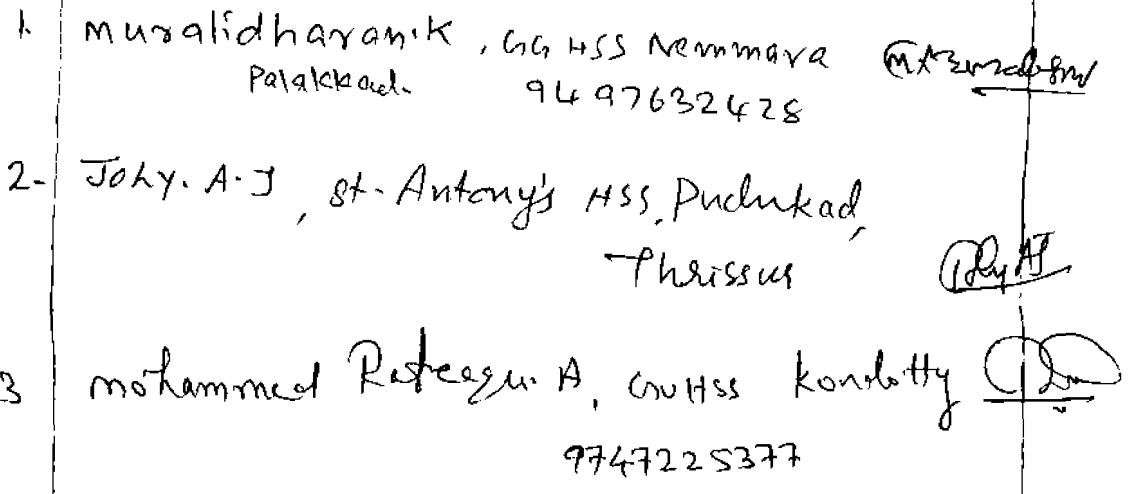 1. muralidharan.K, GG HSS Nemmara
Palakkad.
9497632428
2- Johy. A.J, St. Antony's HSS, Pudukad,
Thrissur
3 mohammed Rafeeque. A, GVHSS kondotty
9747225377